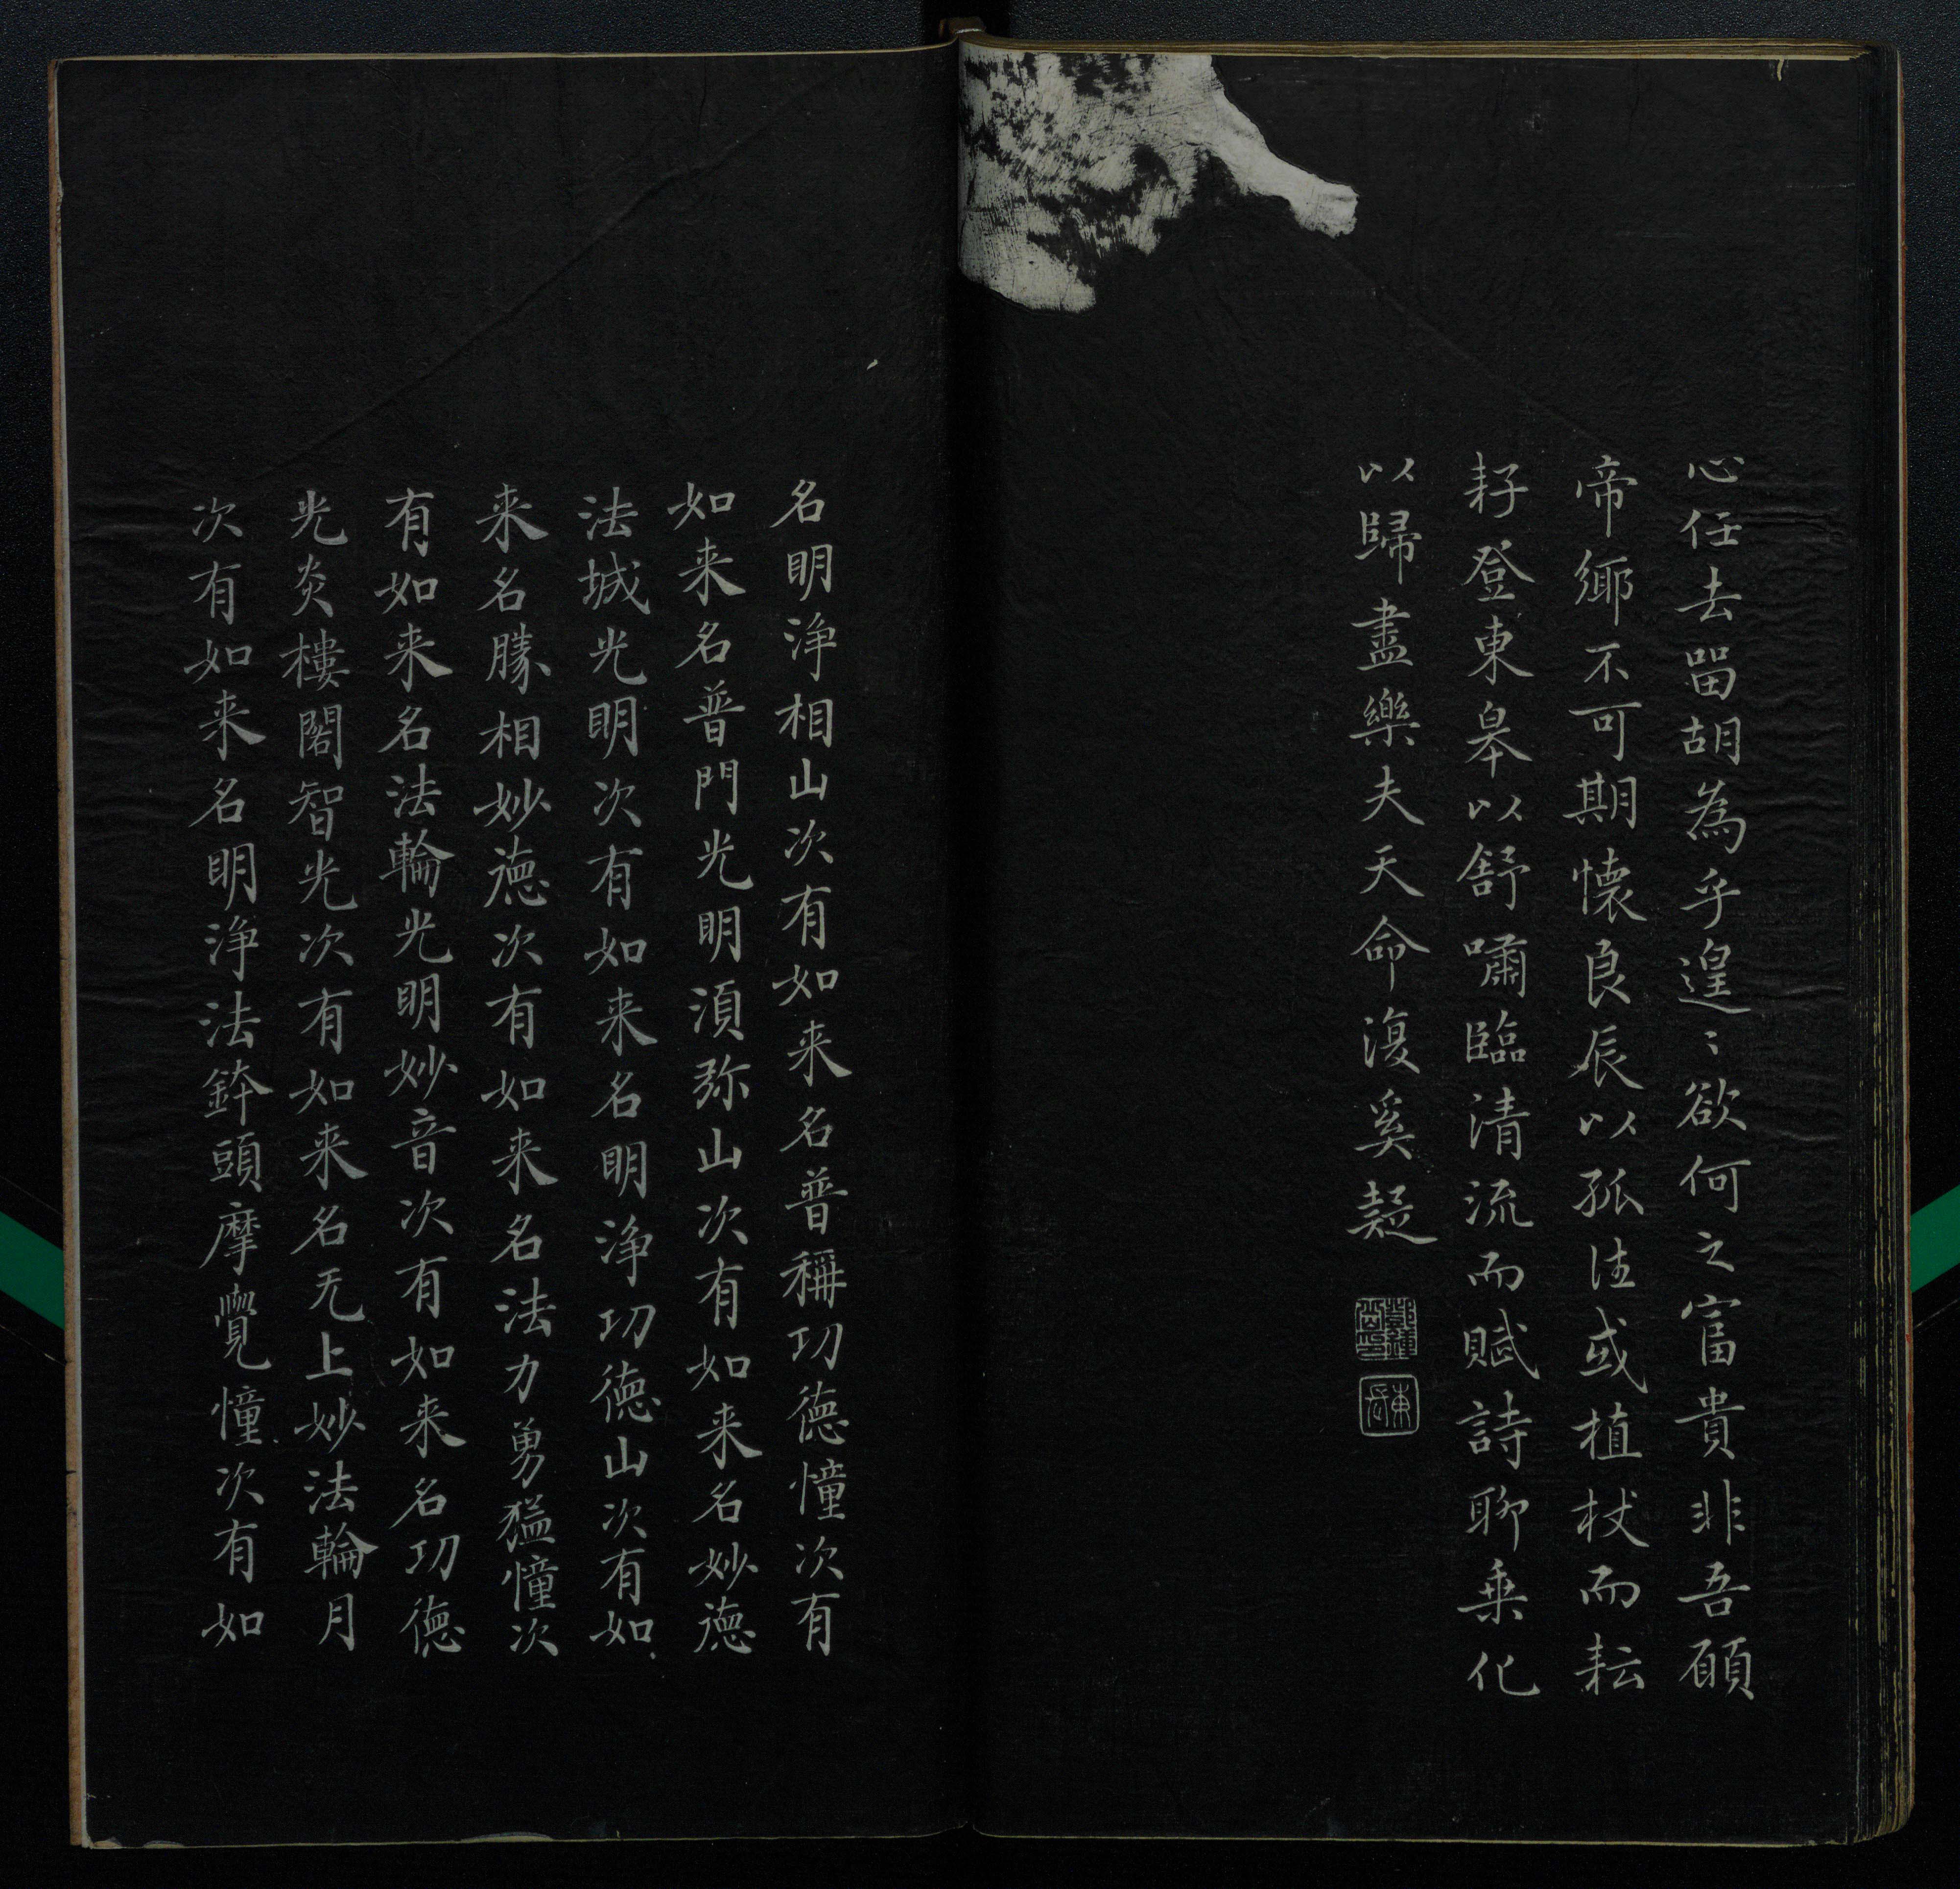 心任去留胡為乎遑〻欲何之富貴非吾願
帝鄉不可期懷良辰以孤往或植杖而耘
耔登東皋以舒嘯臨清流而賦詩聊乗化
以歸盡樂夫天命復奚疑
名明淨相山次有如来名普稱功德憧次有
如来名普門光明湏弥山次有如来名妙德
法城光明次有如来名明淨功德山次有如
来名勝相妙德次有如来名法力勇猛憧次
有如来名法輪光明妙音次有如来名功德
光炎樓閣智光次有如来名无上妙法輪月
次有如来名明淨法鉢頭摩覺憧次有如